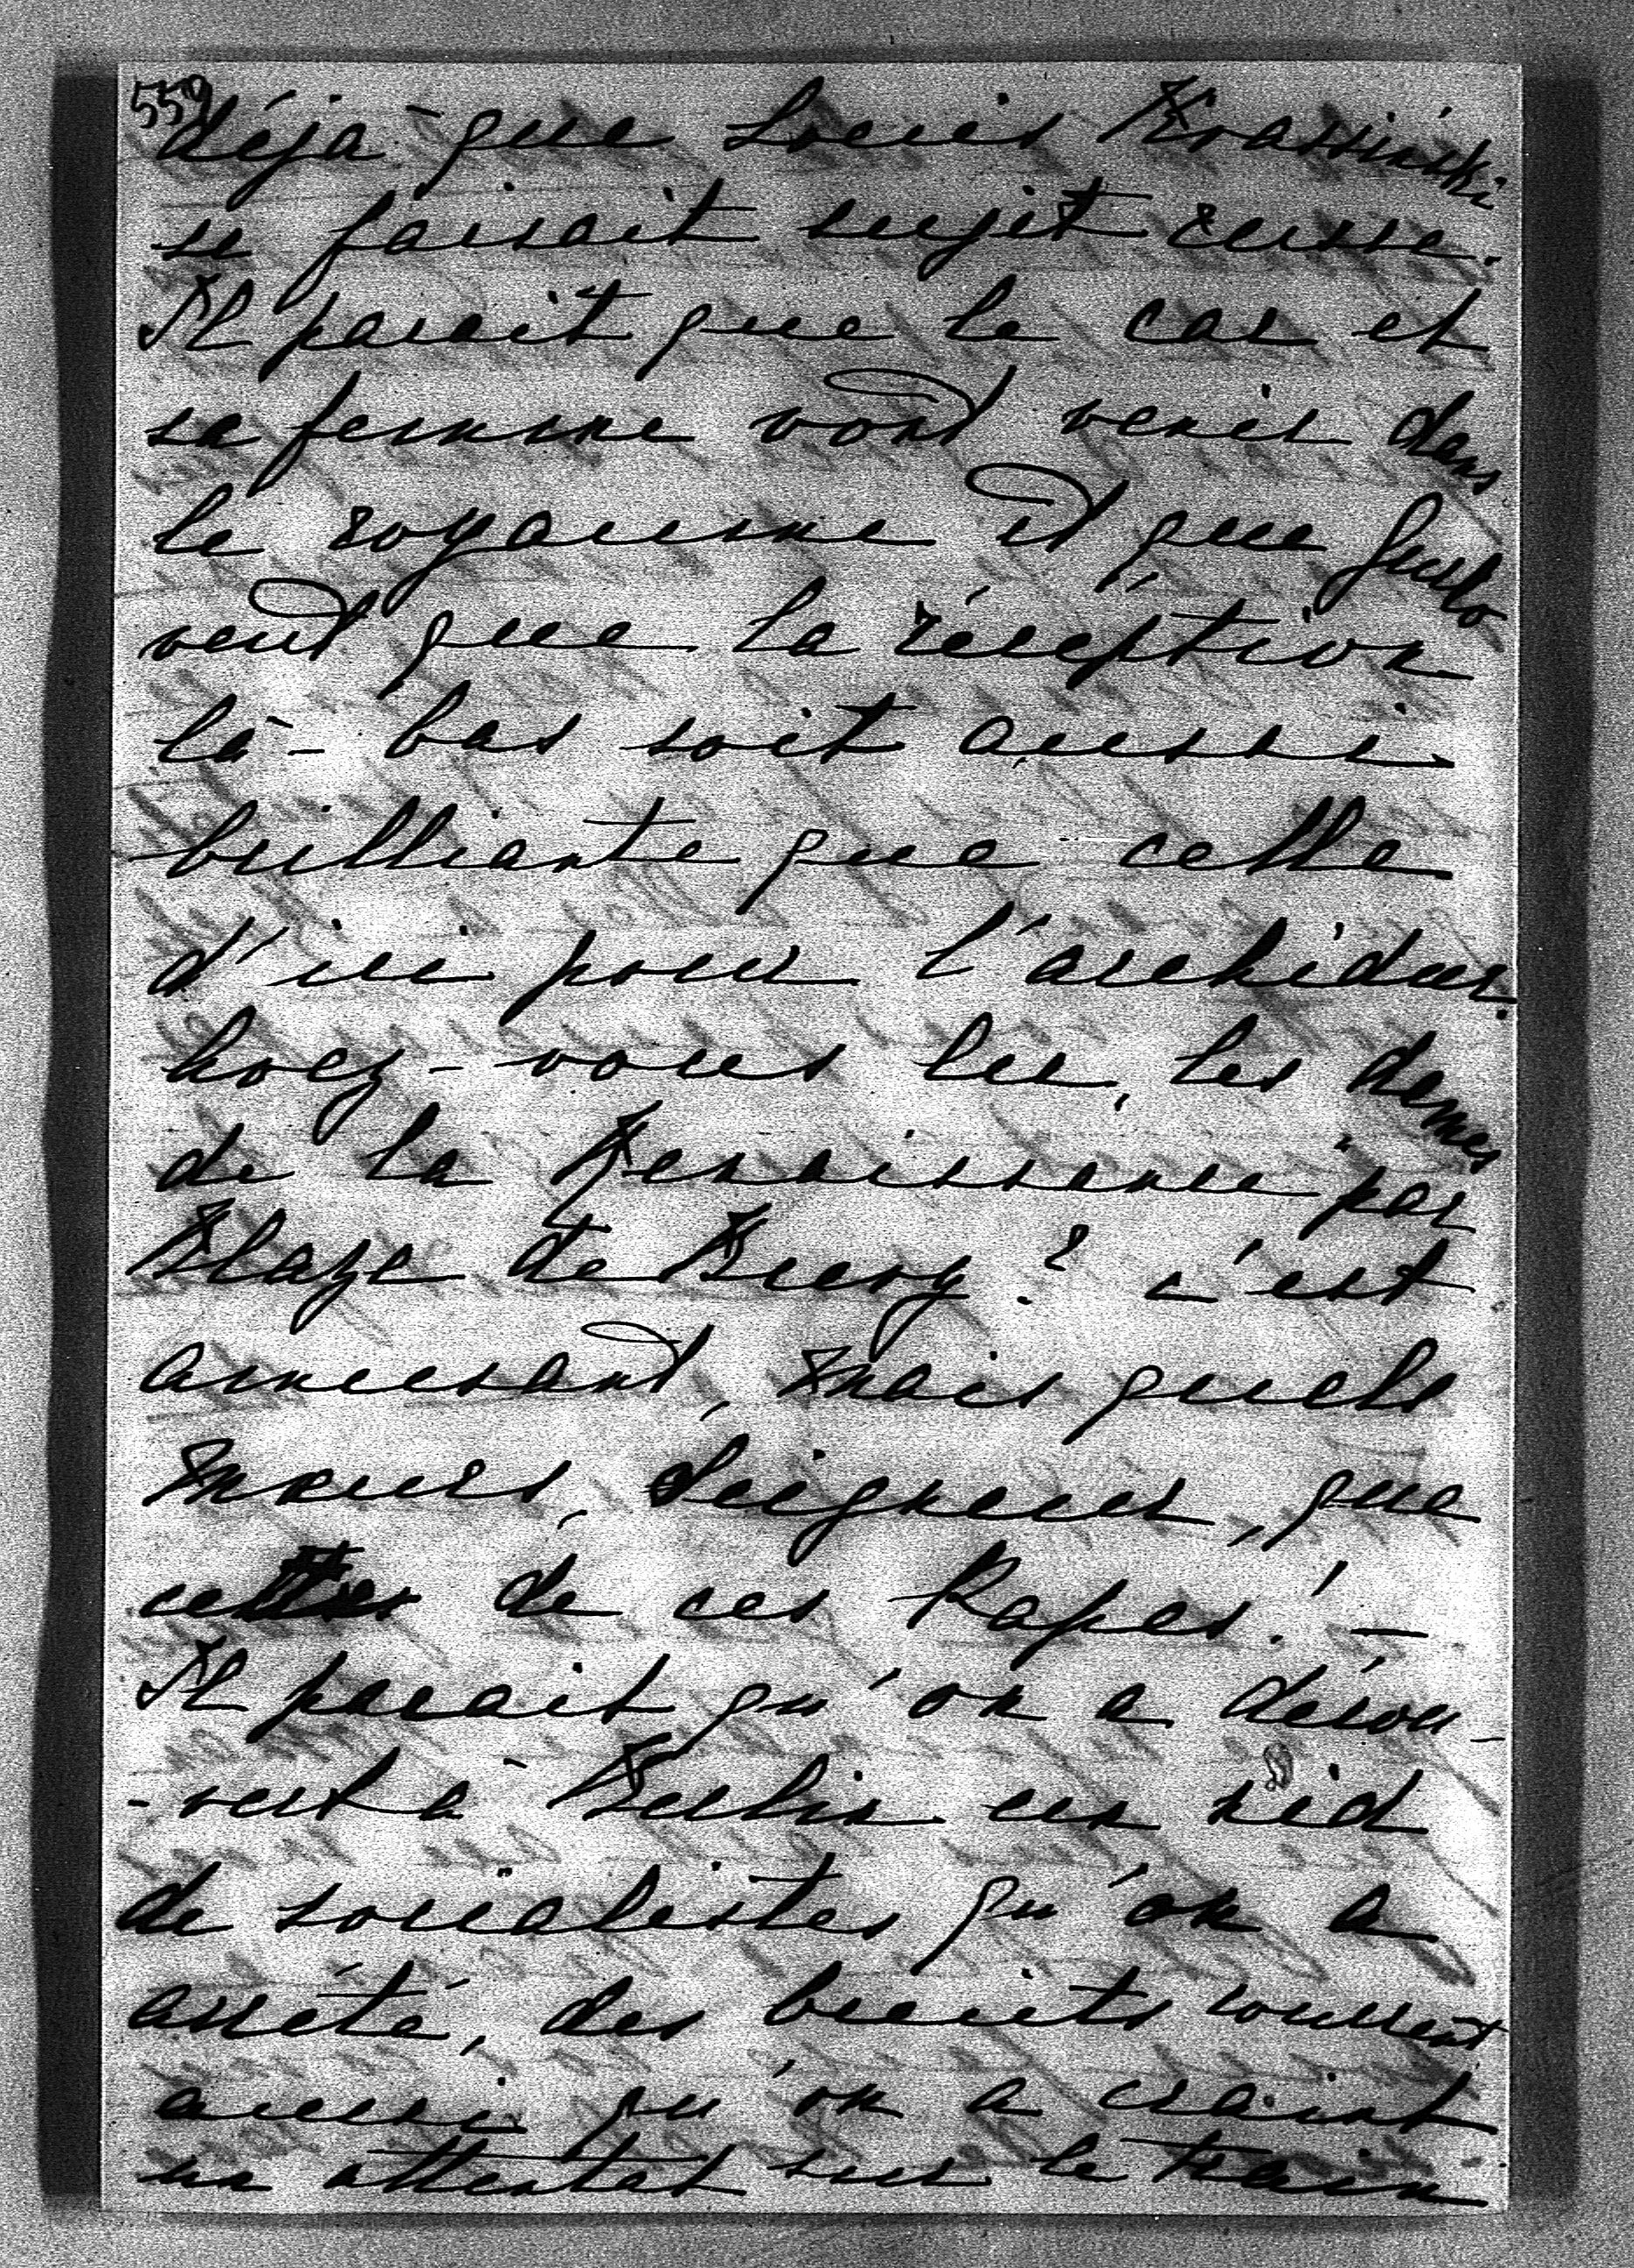 559
déjà que Louis Krasinski
se faisait sujet russe.
Il parait que le cas et
sa femme vont venir dans
le royaume et que Gurko
veut que la réception
là-bas soit aussi
brilliante que celle
d'ici pour l'archiduc.
-vous lu, les dames
de la Renaissance par
Blaze de Bury? c'est
amusant, mais quels
mœurs, Seigneur, que
celles de ces Papes! -
Il parait qu'on a décou-
-vert à Berlin un nid
de socialistes qu'on a
arrêté, des bruits courrent
aussi qu'on a craint
un attentat sur le train